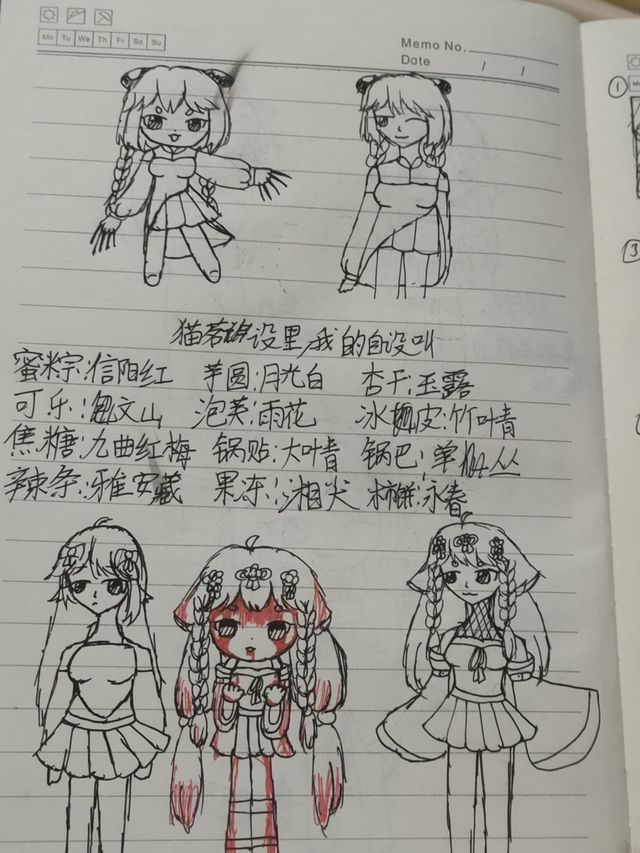 Memo No.
Mo Tu We Th Fr Sa Su
Date / /
猫茗 设里,我的自设叫
蜜粽:信阳红 芋圆:月光白 杏干:玉露
可乐: 文山 泡芙:雨花 冰 皮:竹叶青
焦糖:九曲红梅 锅贴:大叶青 锅巴:单 丛
辣条:雅安藏 果冻:湘尖 柿饼:永春
1
3